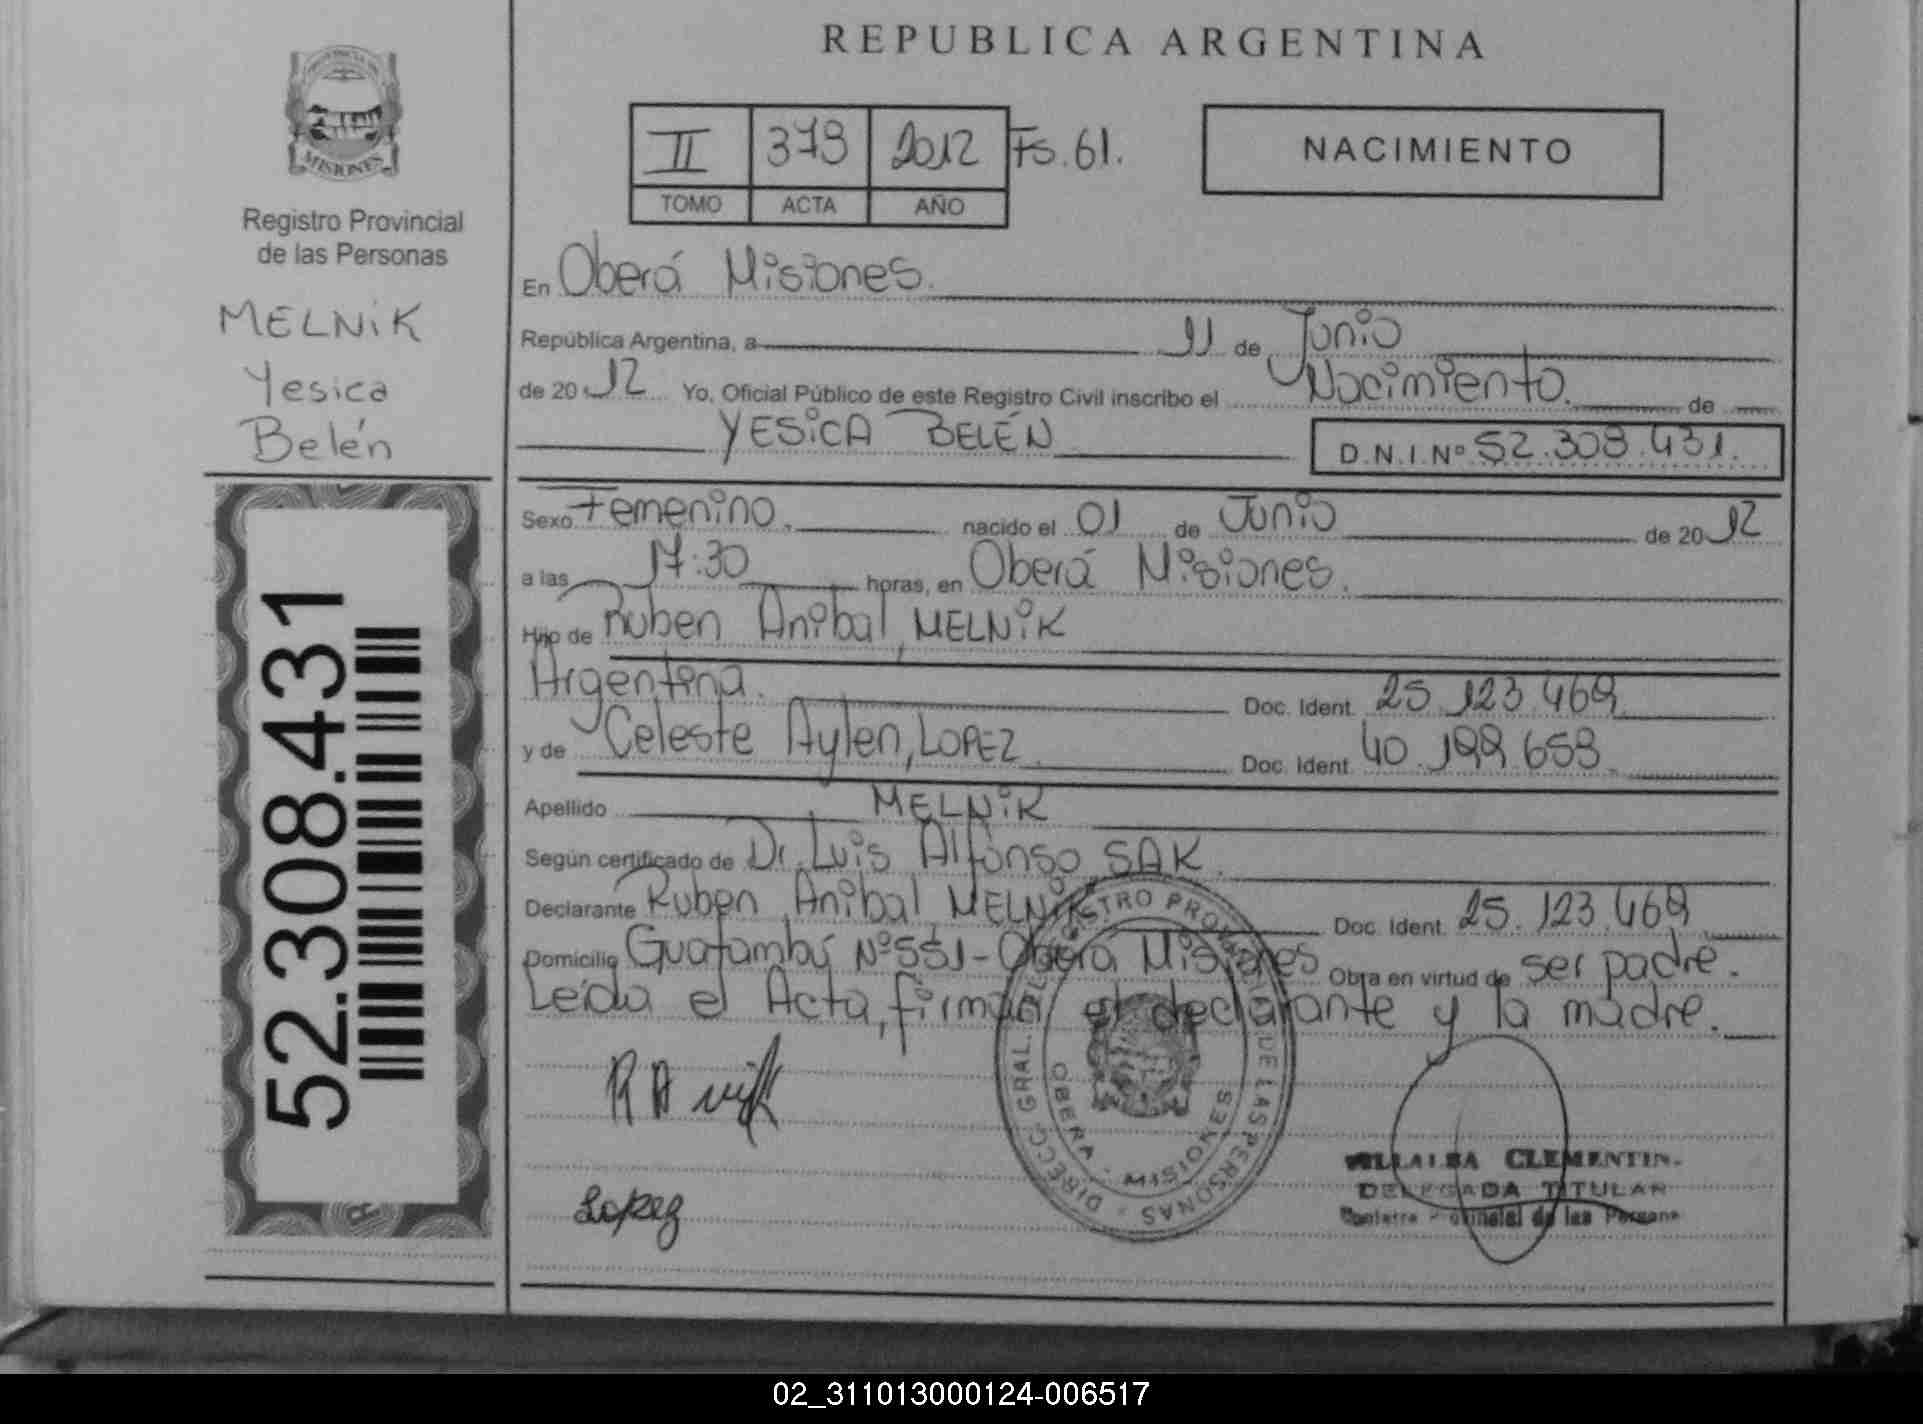 REPUBLICA ARGENTINA
PROVINCIA DE
MISIONES
Registro Provincial
de las Personas
MELNIK
Yesica
Belén
52.308.431
II 379 2012 Fs. 61.
TOMO ACTA AÑO
NACIMIENTO
En Oberá Misiones.
República Argentina, a 11 de Junio
de 2012 Yo, Oficial Público de este Registro Civil inscribo el Nacimiento. de
YESICA BELÉN D.N.I. Nº 52.308.431.
Sexo Femenino. nacido el 01 de Junio de 2012
a las 17:30 horas, en Oberá Misiones.
Hijo de Ruben Anibal, MELNIK
Argentina. Doc. Ident. 25.123.469
y de Celeste Aylen, LOPEZ Doc. Ident. 40.199.659
Apellido MELNIK
Según certificado de Dr. Luis Alfonso SAK.
Declarante Ruben Anibal MELNIK Doc. Ident. 25.123.469
Domicilio Guatambú Nº 551 - Oberá Misiones Obra en virtud de ser padre.
Leida el Acta, firman el declarante y la madre.
DIRECC. GRAL. DEL REGISTRO PROVINCIAL DE LAS PERSONAS
OBERA - MISIONES
Lopez
VILLALBA CLEMENTIN
DELEGADA TITULAR
de las Persona
02_311013000124-006517